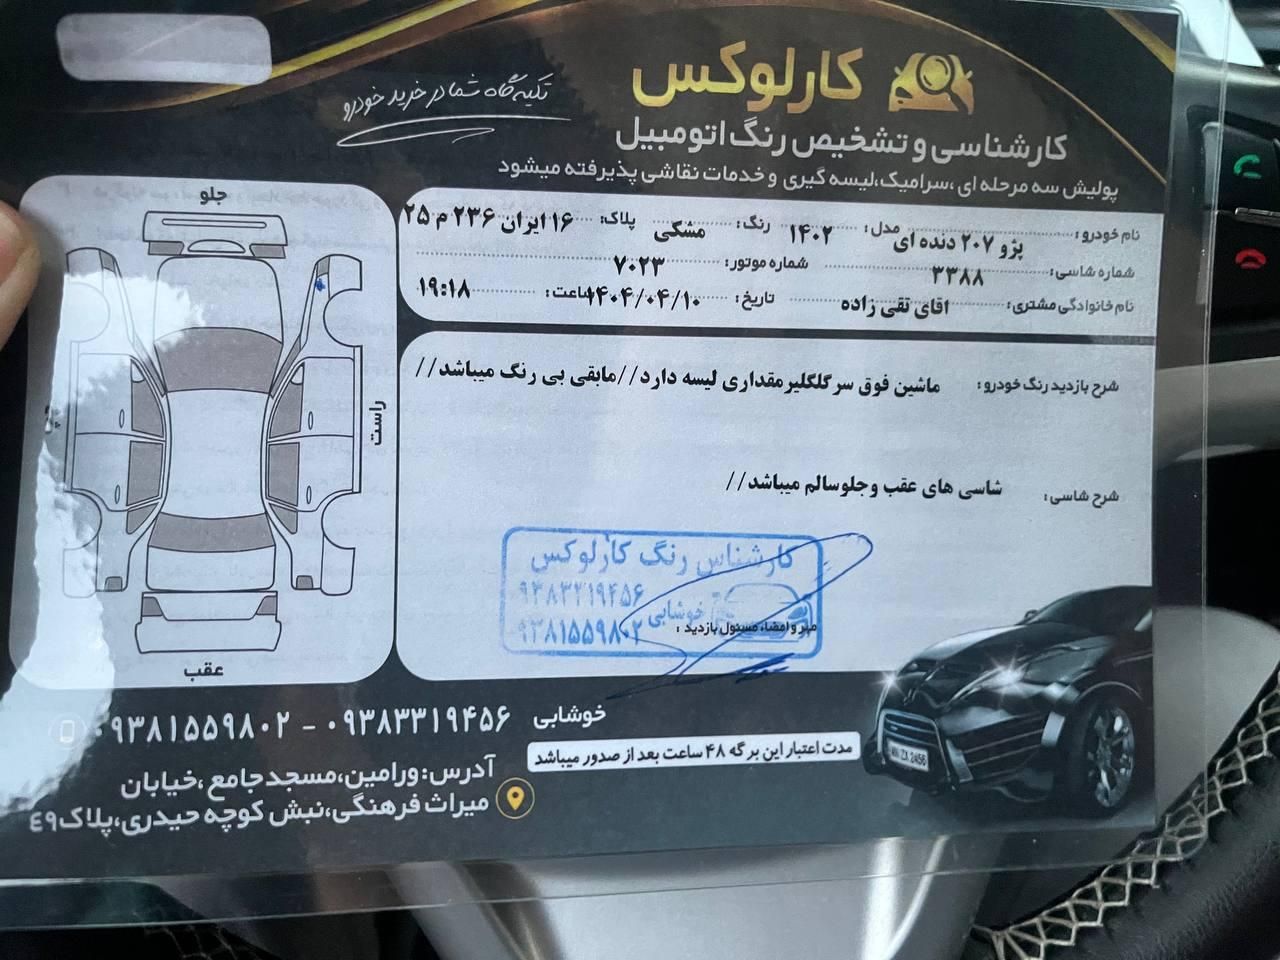 کارلوکس
تکیه گاه شما در خرید خودرو
کارشناسی و تشخیص رنگ اتومبیل
پولیش سه مرحله ای ،سرامیک،لیسه گیری و خدمات نقاشی پذیرفته میشود
نام خودرو: پژو ۲۰۷ دنده ای مدل: ۱۴۰۲ رنگ: مشکی پلاک: ۱۶ ایران ۲۳۶ م ۲۵
شماره شاسی: ۳۳۸۸ شماره موتور: ۷۰۲۳
نام خانوادگی مشتری: اقای تقی زاده تاریخ: ۱۴۰۴/۰۴/۱۰ ساعت: ۱۹:۱۸
جلو
راست
عقب
شرح بازدید رنگ خودرو: ماشین فوق سر گلگیر مقداری لیسه دارد//مابقی بی رنگ میباشد//
شرح شاسی: شاسی های عقب و جلو سالم میباشد//
کارشناس رنگ کارلوکس
۹۳۸۳۳۱۹۴۵۶
خوشابی
۹۳۸۱۵۵۹۸۰۲
مهر و امضاء مسئول بازدید:
خوشابی ۰۹۳۸۳۳۱۹۴۵۶ - ۰۹۳۸۱۵۵۹۸۰۲
مدت اعتبار این برگه ۴۸ ساعت بعد از صدور میباشد
آدرس: ورامین،مسجد جامع ،خیابان
میراث فرهنگی،نبش کوچه حیدری،پلاک ۴۹